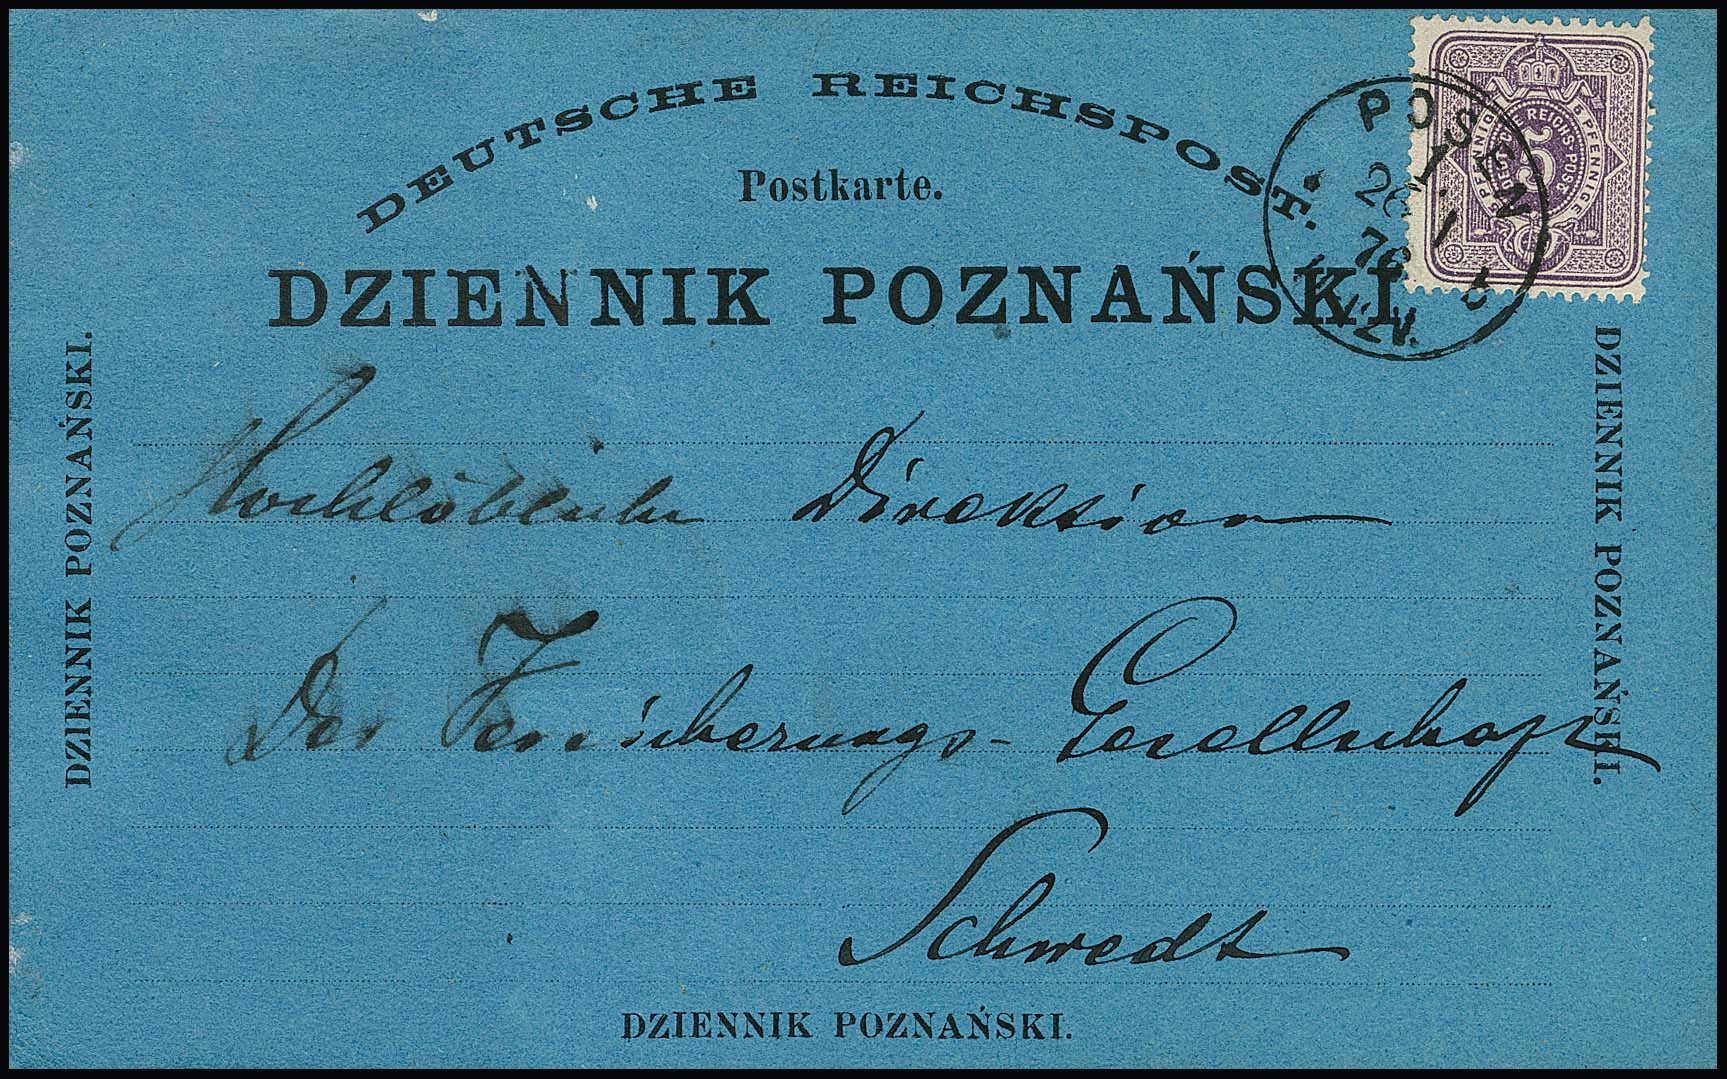 DEUTSCHE REICHSPOST.
Postkarte.
DZIENNIK POZNAŃSKI
5 PFENNIGE
DEUTSCHE REICHS-POST
PFENNIGE
5
POSEN
I.
26 1
78
DZIENNIK POZNAŃSKI.
DZIENNIK POZNAŃSKI.
Hochlöbliche Direktion
Der Versicherungs-Gesellschaft
Schwedt
DZIENNIK POZNAŃSKI.